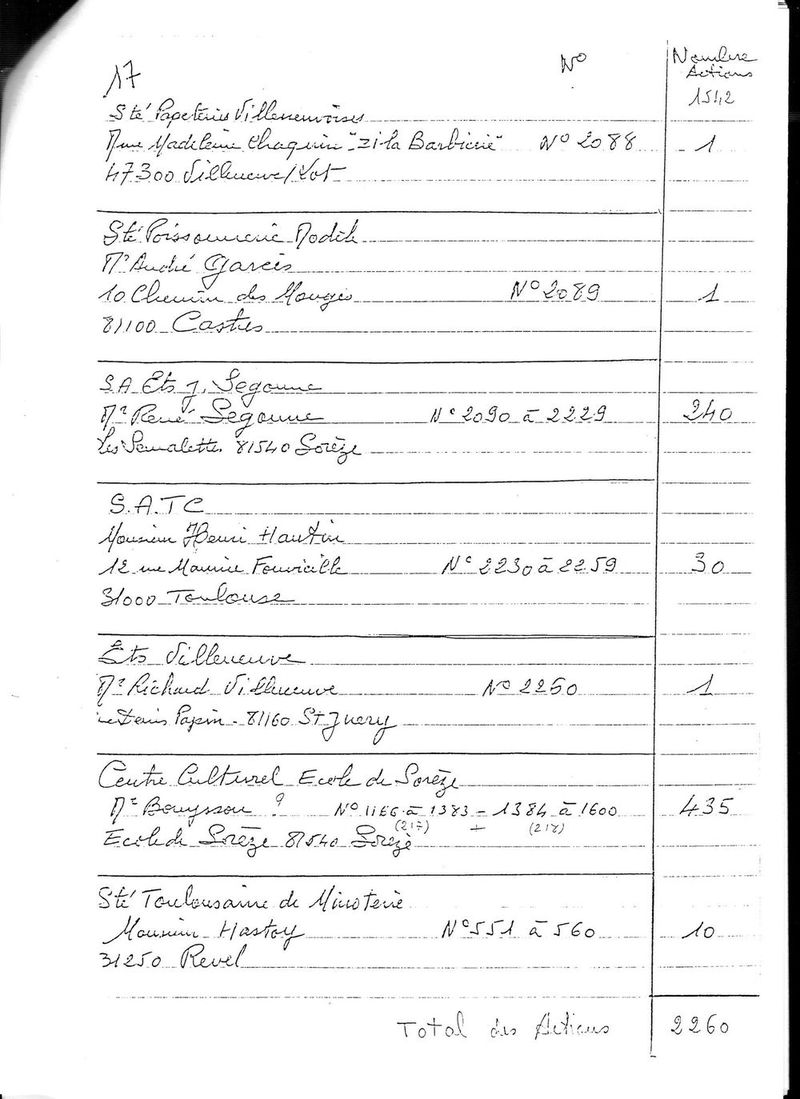 17
N° Nombre Actions
1542
Sté Papeteries Villeneuvoises
Mme Madeleine Chaquin "ZI-la Barbiérie" N° 2088 1
47300 Villeneuve/Lot
Sté Poissonnerie Modèle
Mr André Garcès
10 Chemin des Monges N° 2089 1
81100 Castres
S.A Ets J. Segonne
Mr René Segonne N° 2090 à 2229 240
Les 81540 Sorèze
S.A.T.C
Monsieur Henri Hautin
12 rue Maurice N° 2230 à 2259 30
31000 Toulouse
Ets Villeneuve
Mr Richard Villeneuve N° 2260 1
rue Denis Papin - 81160 St Juery
Centre Culturel Ecole de Sorèze
Mr Bouyssou ? N° 1166 à 1383 - 1384 à 1600 435
(217) + (218)
Ecole de Sorèze 81540 Sorèze
Sté Toulousaine de Minoterie
Monsieur Hastoy N° 551 à 560 10
31250 Revel
Total des Actions 2260